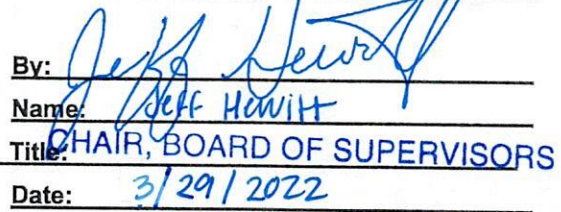 By: Jeff Hewitt
Name: JEFF HEWITT
Title: CHAIR, BOARD OF SUPERVISORS
Date: 3/29/2022